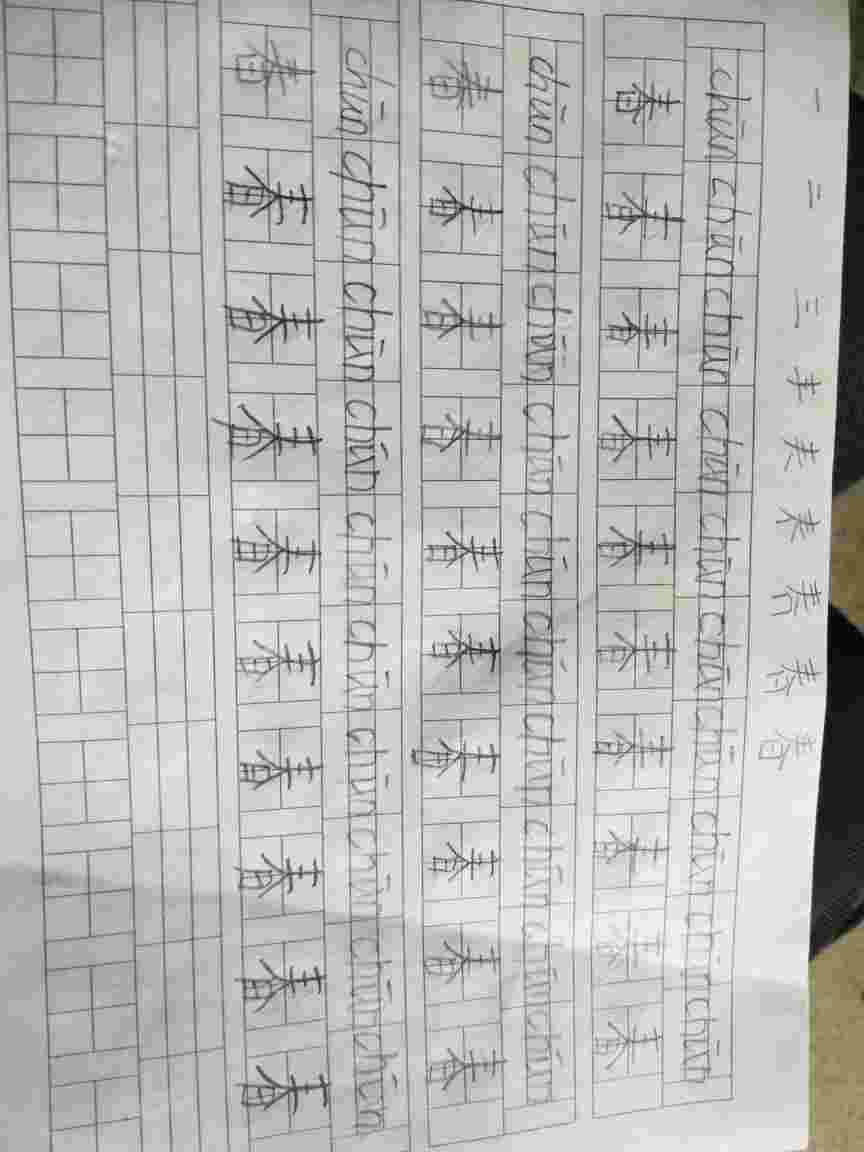 一 二 三 春
chūn chūn chūn chūn chūn chūn chūn chūn chūn chūn
春 春 春 春 春 春 春 春 春 春
chūn chūn chūn chūn chūn chūn chūn chūn chūn chūn
春 春 春 春 春 春 春 春 春 春
chūn chūn chūn chūn chūn chūn chūn chūn chūn chūn
春 春 春 春 春 春 春 春 春 春